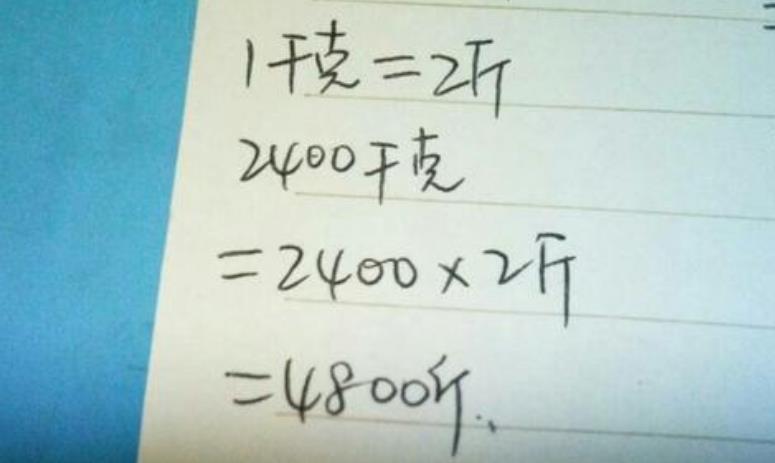 1千克=2斤
2400千克
=2400×2斤
=4800斤.